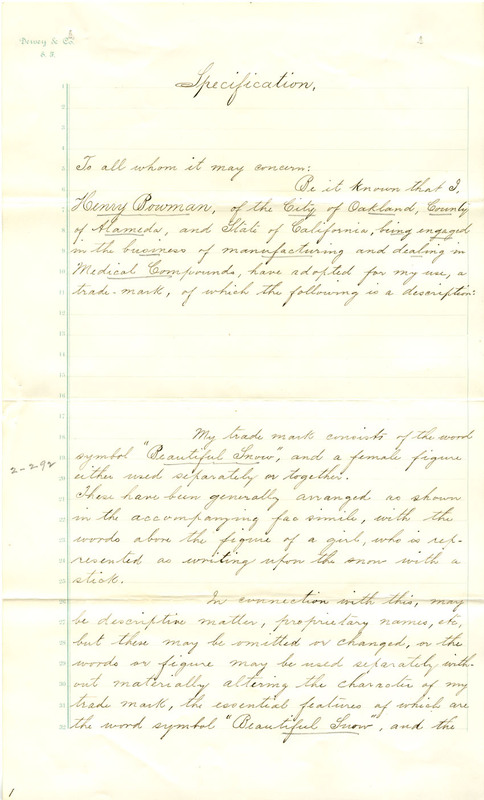 Dewey & Co.
S. F.
2
Specification.
To all whom it may concern:
Be it known that I,
Henry Bowman, of the City of Oakland, County
of Alameda, and State of California, being engaged
in the business of manufacturing and dealing in
Medical Compounds, have adopted for my use, a
trade-mark, of which the following is a description:
My trade mark consists of the word
symbol "Beautiful Snow", and a female figure
2-2-92
either used separately or together.
These have been generally arranged as shown
in the accompanying fac simile, with the
words above the figure of a girl, who is rep-
resented as writing upon the snow with a
stick.
In connection with this, may
be descriptive matter, proprietary names, etc,
but these may be omitted or changed, or the
words or figure may be used separately with-
out materially altering the character of my
trade mark, the essential features of which are
the word symbol "Beautiful Snow", and the
1